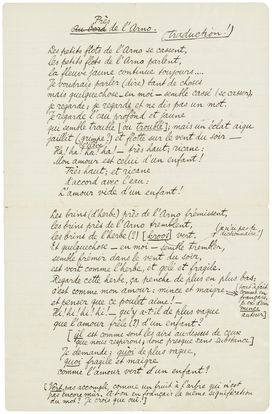 Près
au bord de l'Arno. (Traduction!)
Des petits flots de l'Arno se cassent,
les petits flots de l'Arno parlent,
la fleuve jaune continue toujours....
Je voudrais parler (dire) tant de choses
mais quelquechose en moi — semble crasé (se casser),
je regarde; je regarde et ne dis pas un mot.
Je regarde l'eau profond et jaune
que semble trouble [ou troublé]; mais un éclat aigu
jaillit (grimpe?) et flotte sur le vent du soir —
Ha! ha! ha! ha! — très haut; ricane;
Mon amour est celui d'un enfant!
Très haut; et ricane
d'accord avec l'eau:
L'amour vide d'un enfant!
Les brins (d'herbe) près de l'Arno frémissent,
les brins près de l'Arno tremblent,
les brins de l'herbe (?) [kroos] vert.
(je n'ai pas de dictionnaire.)
Et quelquechose — en moi — semble trembler,
semble frémir dans le vent du soir,
est vert comme l'herbe, et gelé et fragile.
Regarde cette herbe, ça penche de plus en plus bas;
c'est comme mon amour: mince et maigre
et penser que ce poulet aime! —
Ha! ha! ha! ha! — qu'y a-t-il de plus vague
que l'amour frêle (?) d'un enfant!
[il est comme sont les airs audessus de ceux
que nous respirons; donc presque sans substance]
Je demande; quoi de plus vague,
quoi fragile et maigre
comme l'amour vert d'un enfant!
[Vert: pas accompli, comme un fruit à l'arbre qui n'est
pas encore mûr. A-t-on en français la même signification
du mot? Je crois que oui!]